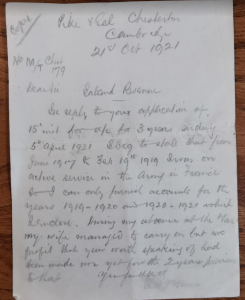 Copy
Pike & Eel Chesterton
Cambridge
21st Oct 1921
No M/T Ches
179
Dear Sir
Inland Revenue
In reply to your application of
15th inst for a/cs for 3 years ending
5th April 1921 I beg to state that from
June 1917 to Feb 19th 1919 I was on
active service in the Army in France
So I can only furnish accounts for the
years 1919-1920 and 1920-1921 which
I enclose. During my absence at the War
my wife managed to carry on but no
profit that you worth speaking of had
been made nor yet for the 2 years previous
to that